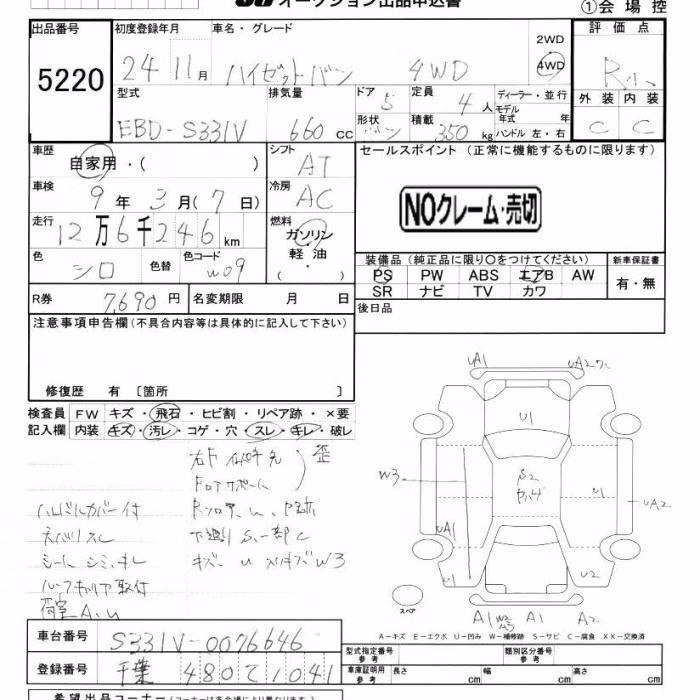 オークション出品申込書
①会場控
出品番号 初度登録年月 車名・グレード 評価点
5220 24 11月 ハイゼットバン 4WD 2WD 4WD
型式 排気量 ドア 5 定員 4人 ディーラー・並行
モデル年式 年
外装 内装
EBD-S331V 660cc 形状 バン 積載 350kg ハンドル 左・右 C C
車歴 シフト セールスポイント (正常に機能するものに限ります)
自家用・( ) AT
車検 9年3月(7日) 冷房 AC
NOクレーム・売切
走行 12万6千246km 燃料 ガソリン
軽油
・( )
色 シロ 色替 色コード W09
装備品 (純正品に限り○をつけてください) 新車保証書
PS PW ABS エアB AW 有・無
SR ナビ TV カワ
R券 7,690円 名変期限 月 日
後日品
注意事項申告欄 (不具合内容等は具体的に記入して下さい)
修復歴 有 〔箇所 〕
検査員 FW キズ・飛石・ヒビ割・リペア跡・×要
記入欄 内装 キズ・汚レ・コゲ・穴・スレ・キレ・破レ
ハンドルカバー付
シート シミ、キレ
ルーフキャリア取付
荷室A、U
下廻りS、一部C
W3
A1
UA2
U1
W3
U1
UA2
UA1
U2
スペア
A1
A1
A2
A-キズ E-エクボ U-凹み W-補修跡 S-サビ C-腐食 XX-交換済
車台番号 S331V-0076646
登録番号 千葉 480 て 1041
型式指定番号 参考 類別区分番号 参考
車庫証明用 参考 長さ cm 幅 cm 高さ cm
希望出品コーナー (コーナーは各会場により異なります)